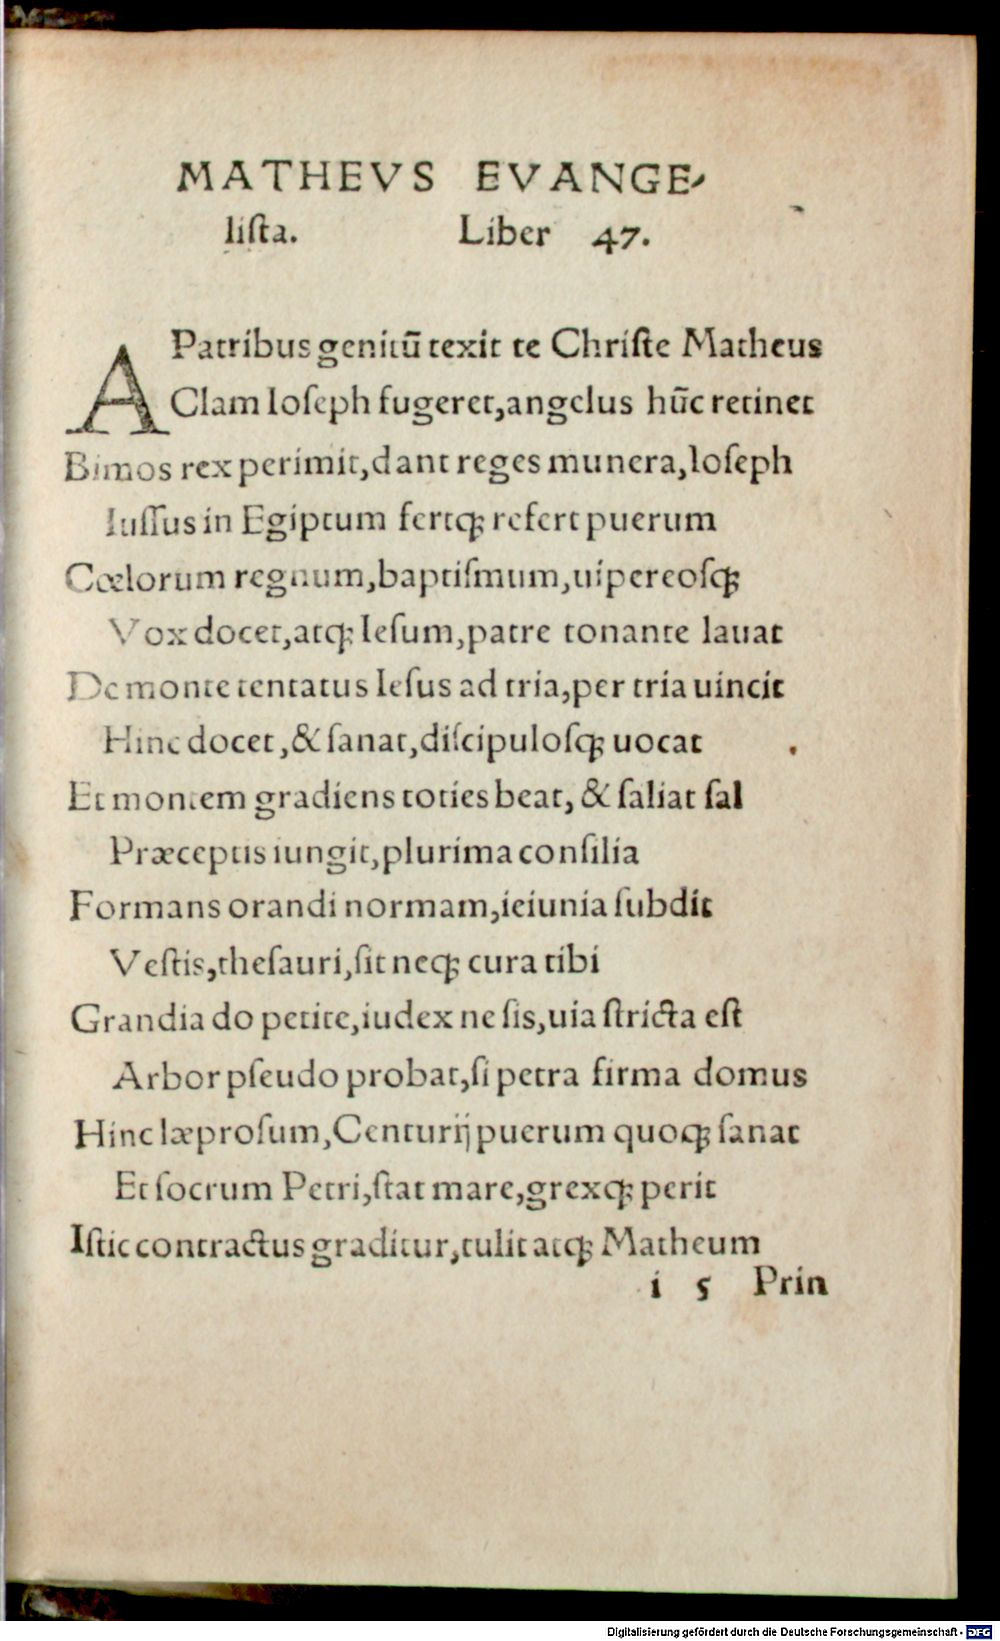 MATHEVS EVANGE-
liſta. Liber 47.
A Patribus genitū texit te Chriſte Matheus
Clam Ioſeph fugeret,angelus hūc retinet
Bimos rex perimit,dant reges munera,Ioſeph
Iuſſus in Egiptum fertqꝫ refert puerum
Cœlorum regnum,baptiſmum,uipereoſqꝫ
Vox docet,atqꝫ Ieſum,patre tonante lauat
De monte tentatus Ieſus ad tria,per tria uincit
Hinc docet,& ſanat,diſcipuloſqꝫ uocat
Et montem gradiens toties beat, & ſaliat ſal
Præceptis iungit,plurima conſilia
Formans orandi normam,ieiunia ſubdit
Veſtis,theſauri,ſit neqꝫ cura tibi
Grandia do petite,iudex ne ſis,uia ſtricta eſt
Arbor pſeudo probat,ſi petra firma domus
Hinc læproſum,Centurij puerum quoqꝫ ſanat
Et ſocrum Petri,ſtat mare,grexqꝫ perit
Iſtic contractus graditur,tulit atqꝫ Matheum
i 5 Prin
Digitalisierung gefördert durch die Deutsche Forschungsgemeinschaft - DFG